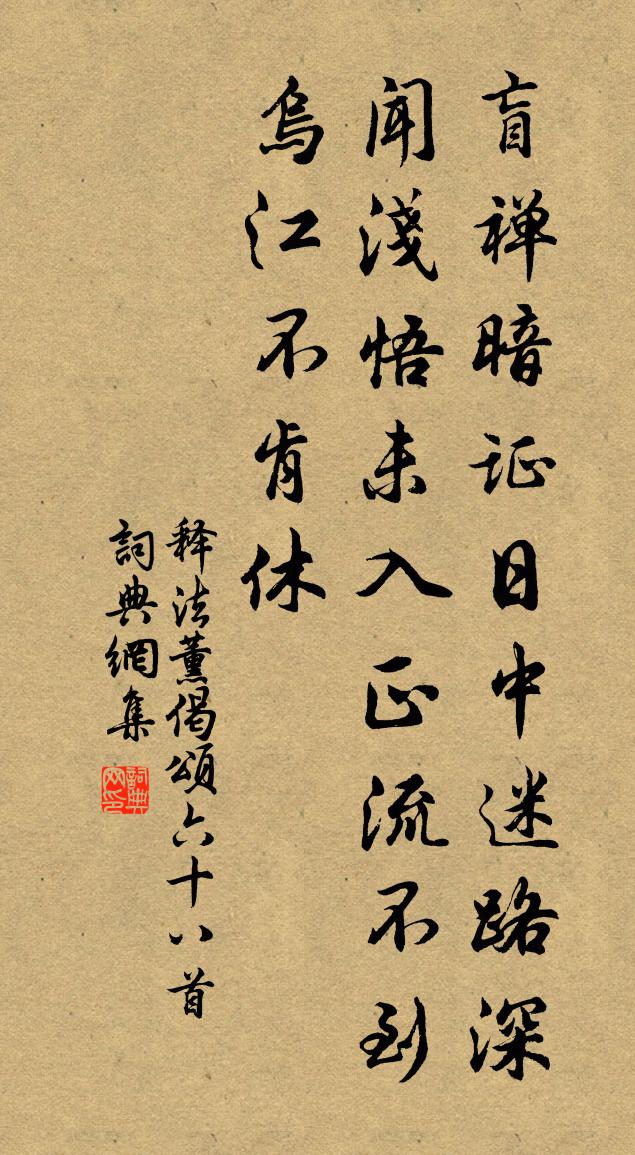 盲禅暗证日中迷路深
闻浅悟未入正流不到
乌江不肯休
释法薰偈颂六十八首
词典网集
詞典网印